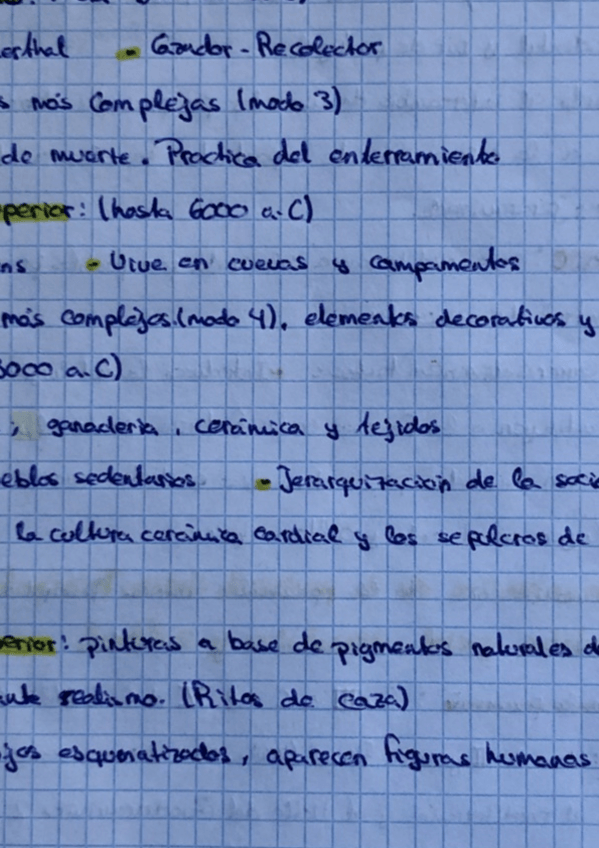 erthal - Cazador - Recolector
s más complejas (modo 3)
de muerte. Practica del enterramiento
perior: (hasta 6000 a.C)
ns - Vive en cuevas y campamentos
más complejos.(modo 4), elementos decorativos y
3000 a.C)
; ganaderia, cerámica y tejidos
eblos sedentarios - Jerarquización de la soci
la cultura cerámica cardial y los sepulcros de
erior: pinturas a base de pigmentos naturales d
ante realismo. (Ritos de caza)
jos esquematizados, aparecen figuras humanas